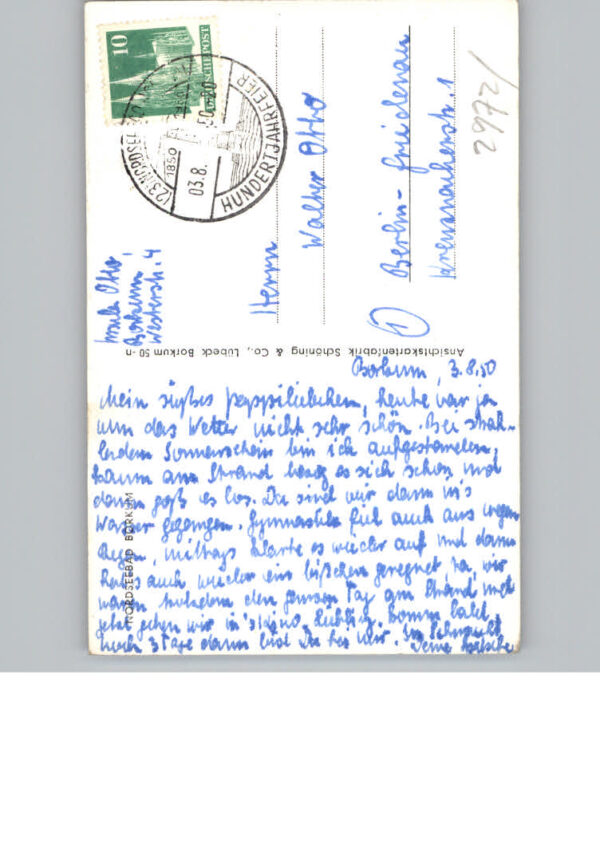 10
DEUTSCHE POST
(23) NORDSEEBAD
1850
03.8.50.-20
HUNDERTJAHRFEIER
2972/
Herrn
Walter Otto
Berlin-Friedenau
Kreuznacherstr. 1
Otto
Borkum
Westerstr. 4
Ansichtskartenfabrik Schöning & Co., Lübeck Borkum 50 -n
NORDSEEBAD BORKUM
Borkum, 3.8.50
Mein süßes, heute war ja
nun das Wetter nicht sehr schön. Bei strah-
lendem Sonnenschein bin ich aufgestanden,
kaum am Strand bezog es sich schon und
dann goß es los. Da sind wir dann in's
Wasser gegangen. Gymnastik fiel auch aus wegen
Regen, mittags klarte es wieder auf und dann
hat's auch wieder ein bißchen geregnet, na, wir
waren trotzdem den ganzen Tag am Strand und
jetzt gehen wir in's Kino. Liebling, komm bald,
noch 3 Tage dann bist Du bei mir. In Sehnsucht
Deine